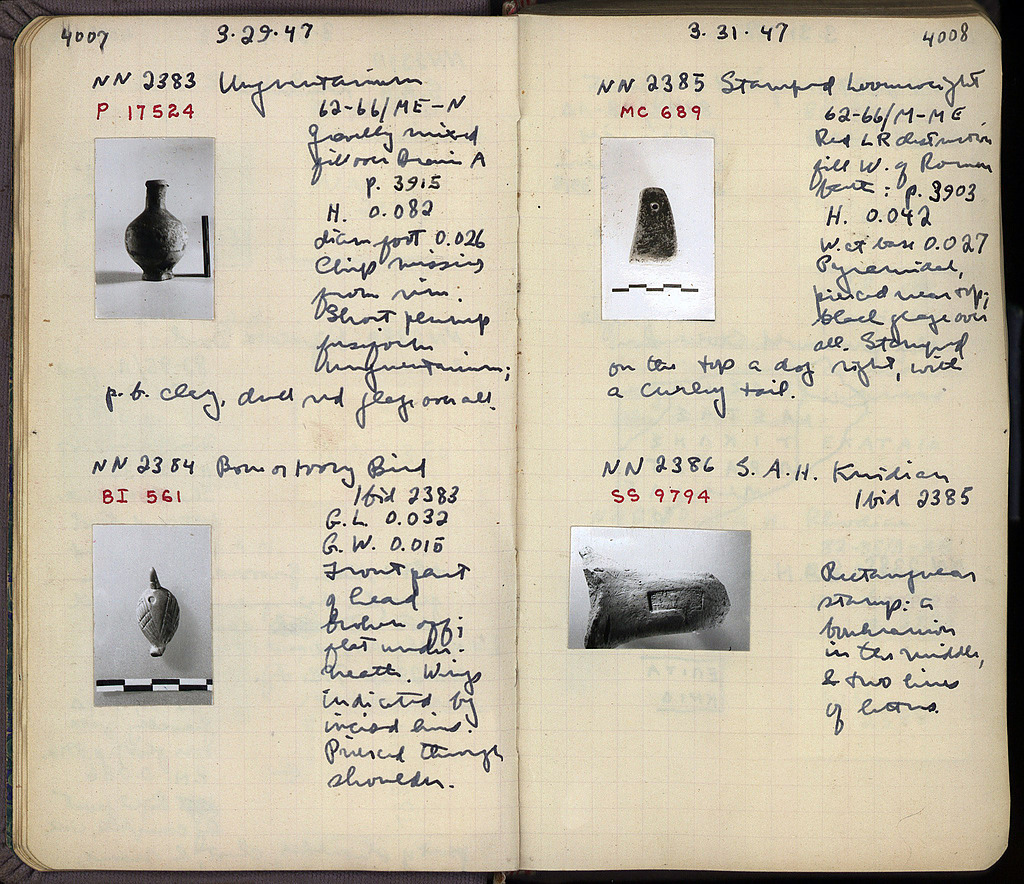 4007
3·29·47
NN 2383 Unguentarium
P 17524
62-66/ME-N
gravelly mixed
fill over Drain A
p. 3915
H. 0.082
diam foot 0.026
Chip missing
from rim.
Short plump
fusiform
unguentarium;
p.b. clay, dull red glaze over all.
NN 2384 Bone or Ivory Bird
BI 561
Ibid 2383
G.L. 0.032
G.W. 0.015
Front part
of head
broken off;
flat under-
neath. Wings
indicated by
incised lines.
Pierced through
shoulder.
3·31·47
4008
NN 2385 Stamped Loomweight
MC 689
62-66/M-ME
Red LR destruction
fill W. of Roman
: p. 3903
H. 0.042
W. at base 0.027
Pyramidal,
pierced near top;
black glaze over
all. Stamped
on the top a dog right, with
a curley tail.
NN 2386 S.A.H. Knidian
SS 9794
Ibid 2385
Rectangular
stamp: a
boukranion
in the middle,
& two lines
of letters.